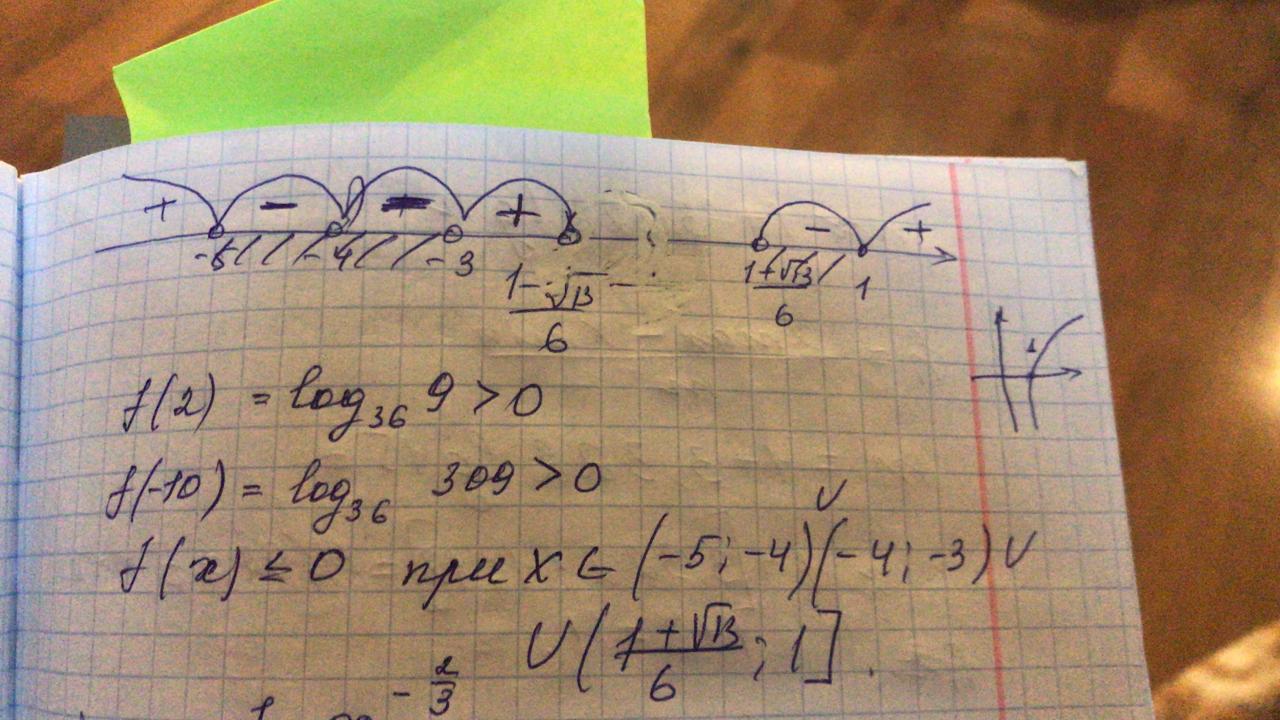 + - + + - +
-5 -4 -3 1-√13/6 1+√13/6 1
1
f(2) = log₃₆ 9 > 0
f(-10) = log₃₆ 309 > 0
f(x) ≤ 0 при x ∈ (-5; -4) ∪ (-4; -3) ∪
∪ (1+√13/6; 1].
-2/3